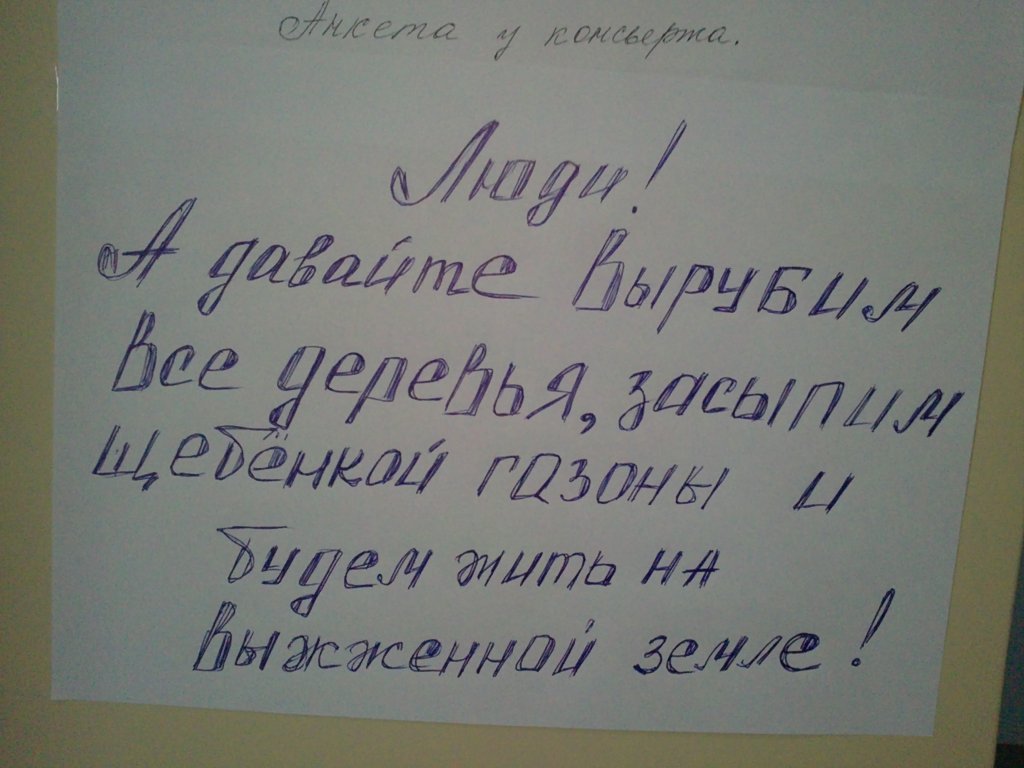 Анкета у консьержа.
Люди!
А давайте вырубим
все деревья, засыпим
щебёнкой газоны и
будем жить на
выжженной земле!